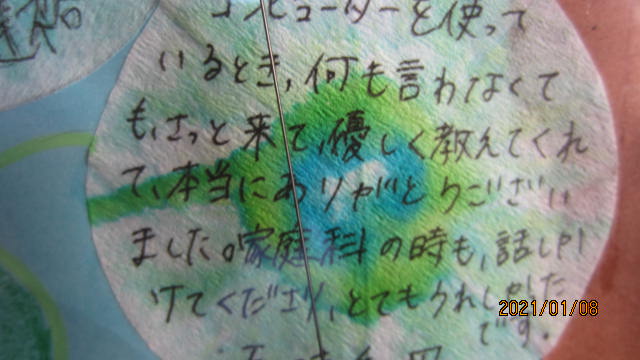 コンピューターを使って
いるとき,何も言わなくて
も,さっと来て,優しく教えてくれ
て,本当にありがとうござい
ました。家庭科の時も,話しか
けてくださり,とてもうれしかった
です.
2021/01/08